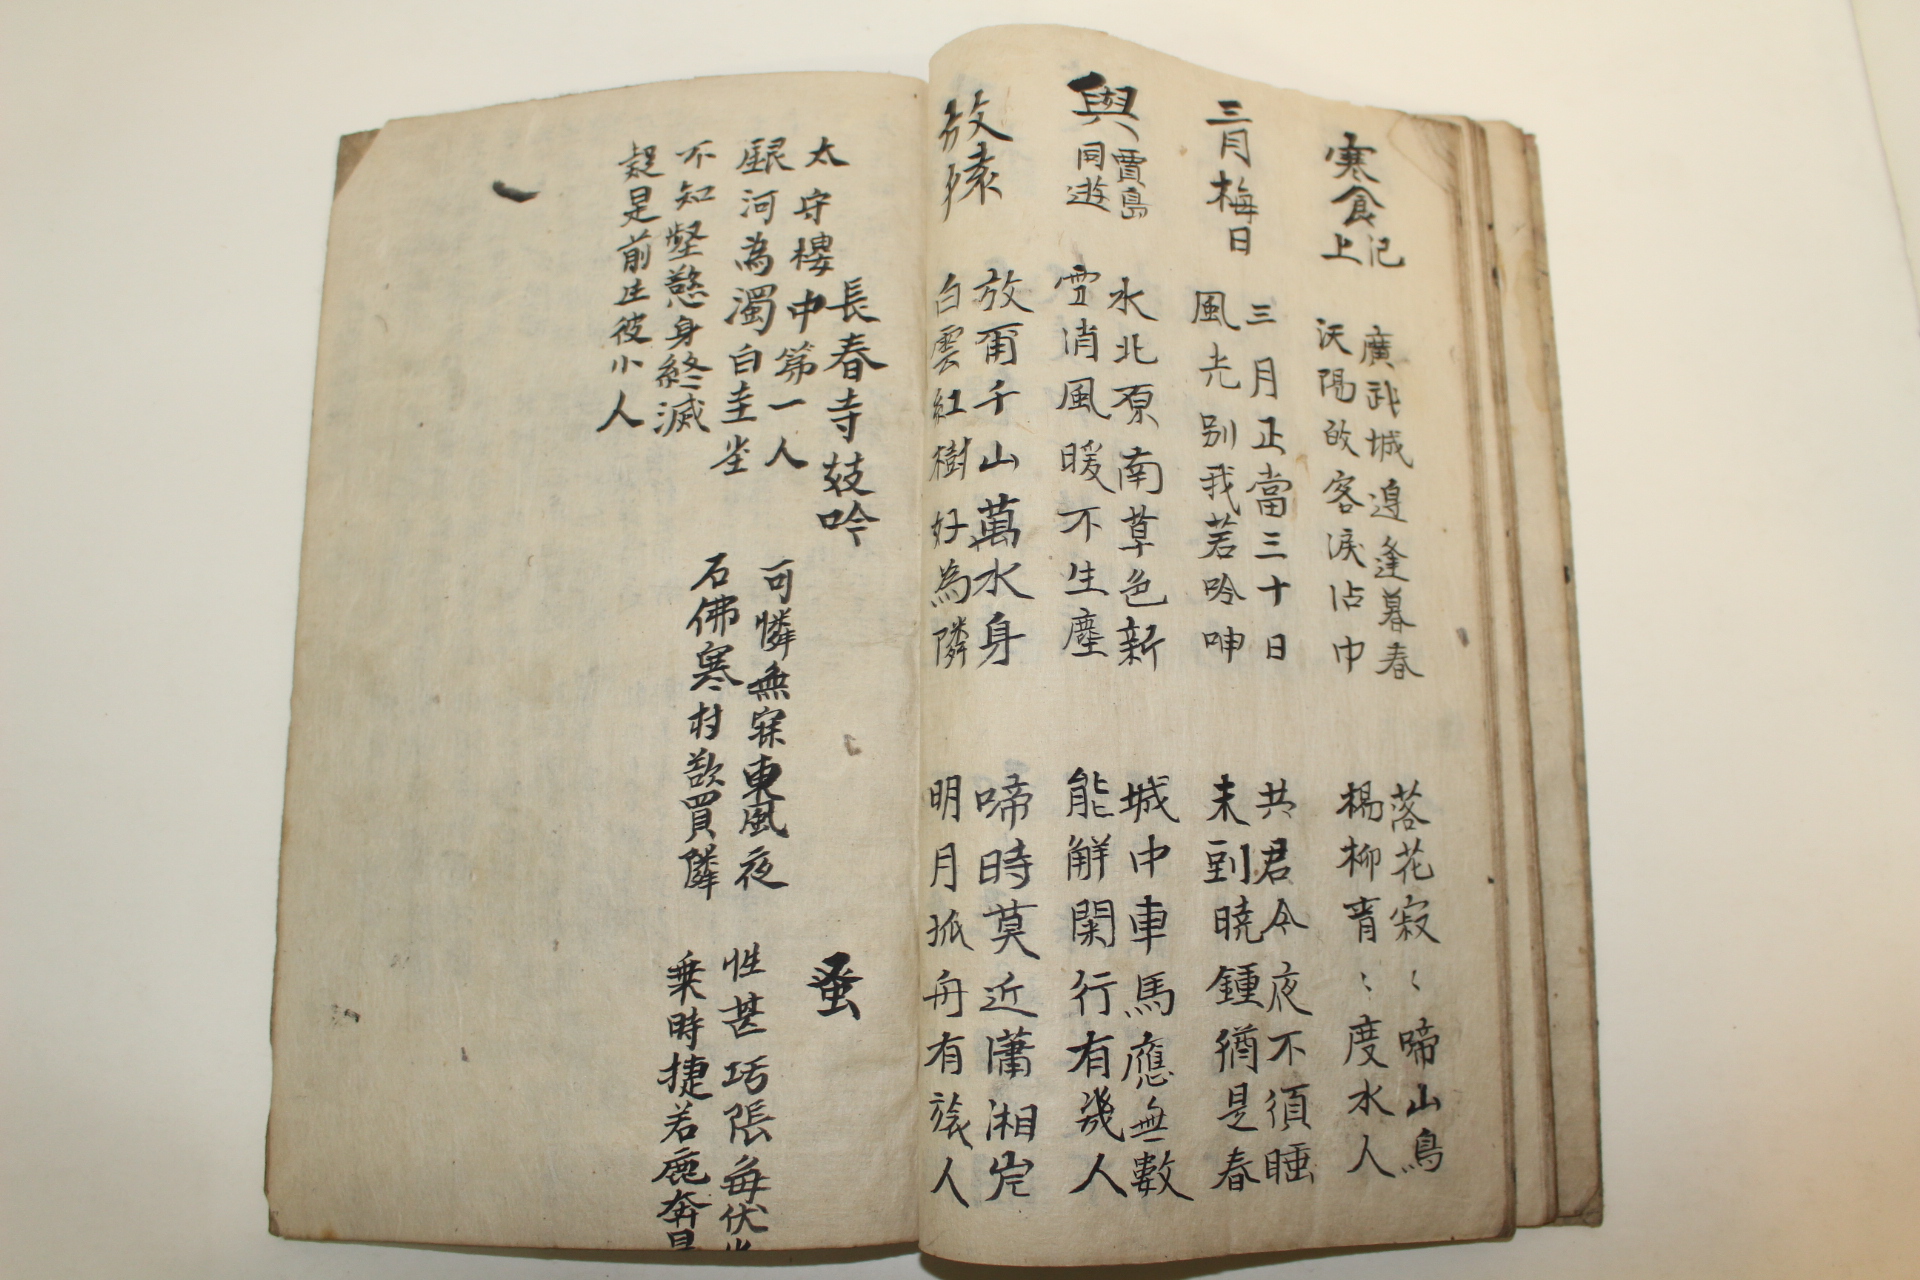 寒食 記上
廣武城邊逢暮春
汶陽故客淚沾巾
落花寂〻啼山鳥
楊柳靑〻度水人
三月梅日
三月正當三十日
風光別我若吟呻
共君今夜不須睡
未到曉鍾猶是春
與賈島同遊
水北原南草色新
雪消風暖不生塵
城中車馬應無數
能解閑行有幾人
放猿
放爾千山萬水身
白雲紅樹好為隣
啼時莫近瀟湘岸
明月孤舟有旅人
長春寺妓吟
太守樓中第一人
銀河為濁白圭塵
可憐無寐東風夜
石佛寒村欲買隣
蚤
不知堅慾身終滅
疑是前生彼小人
性甚巧張每伏
乗時捷若鹿奔